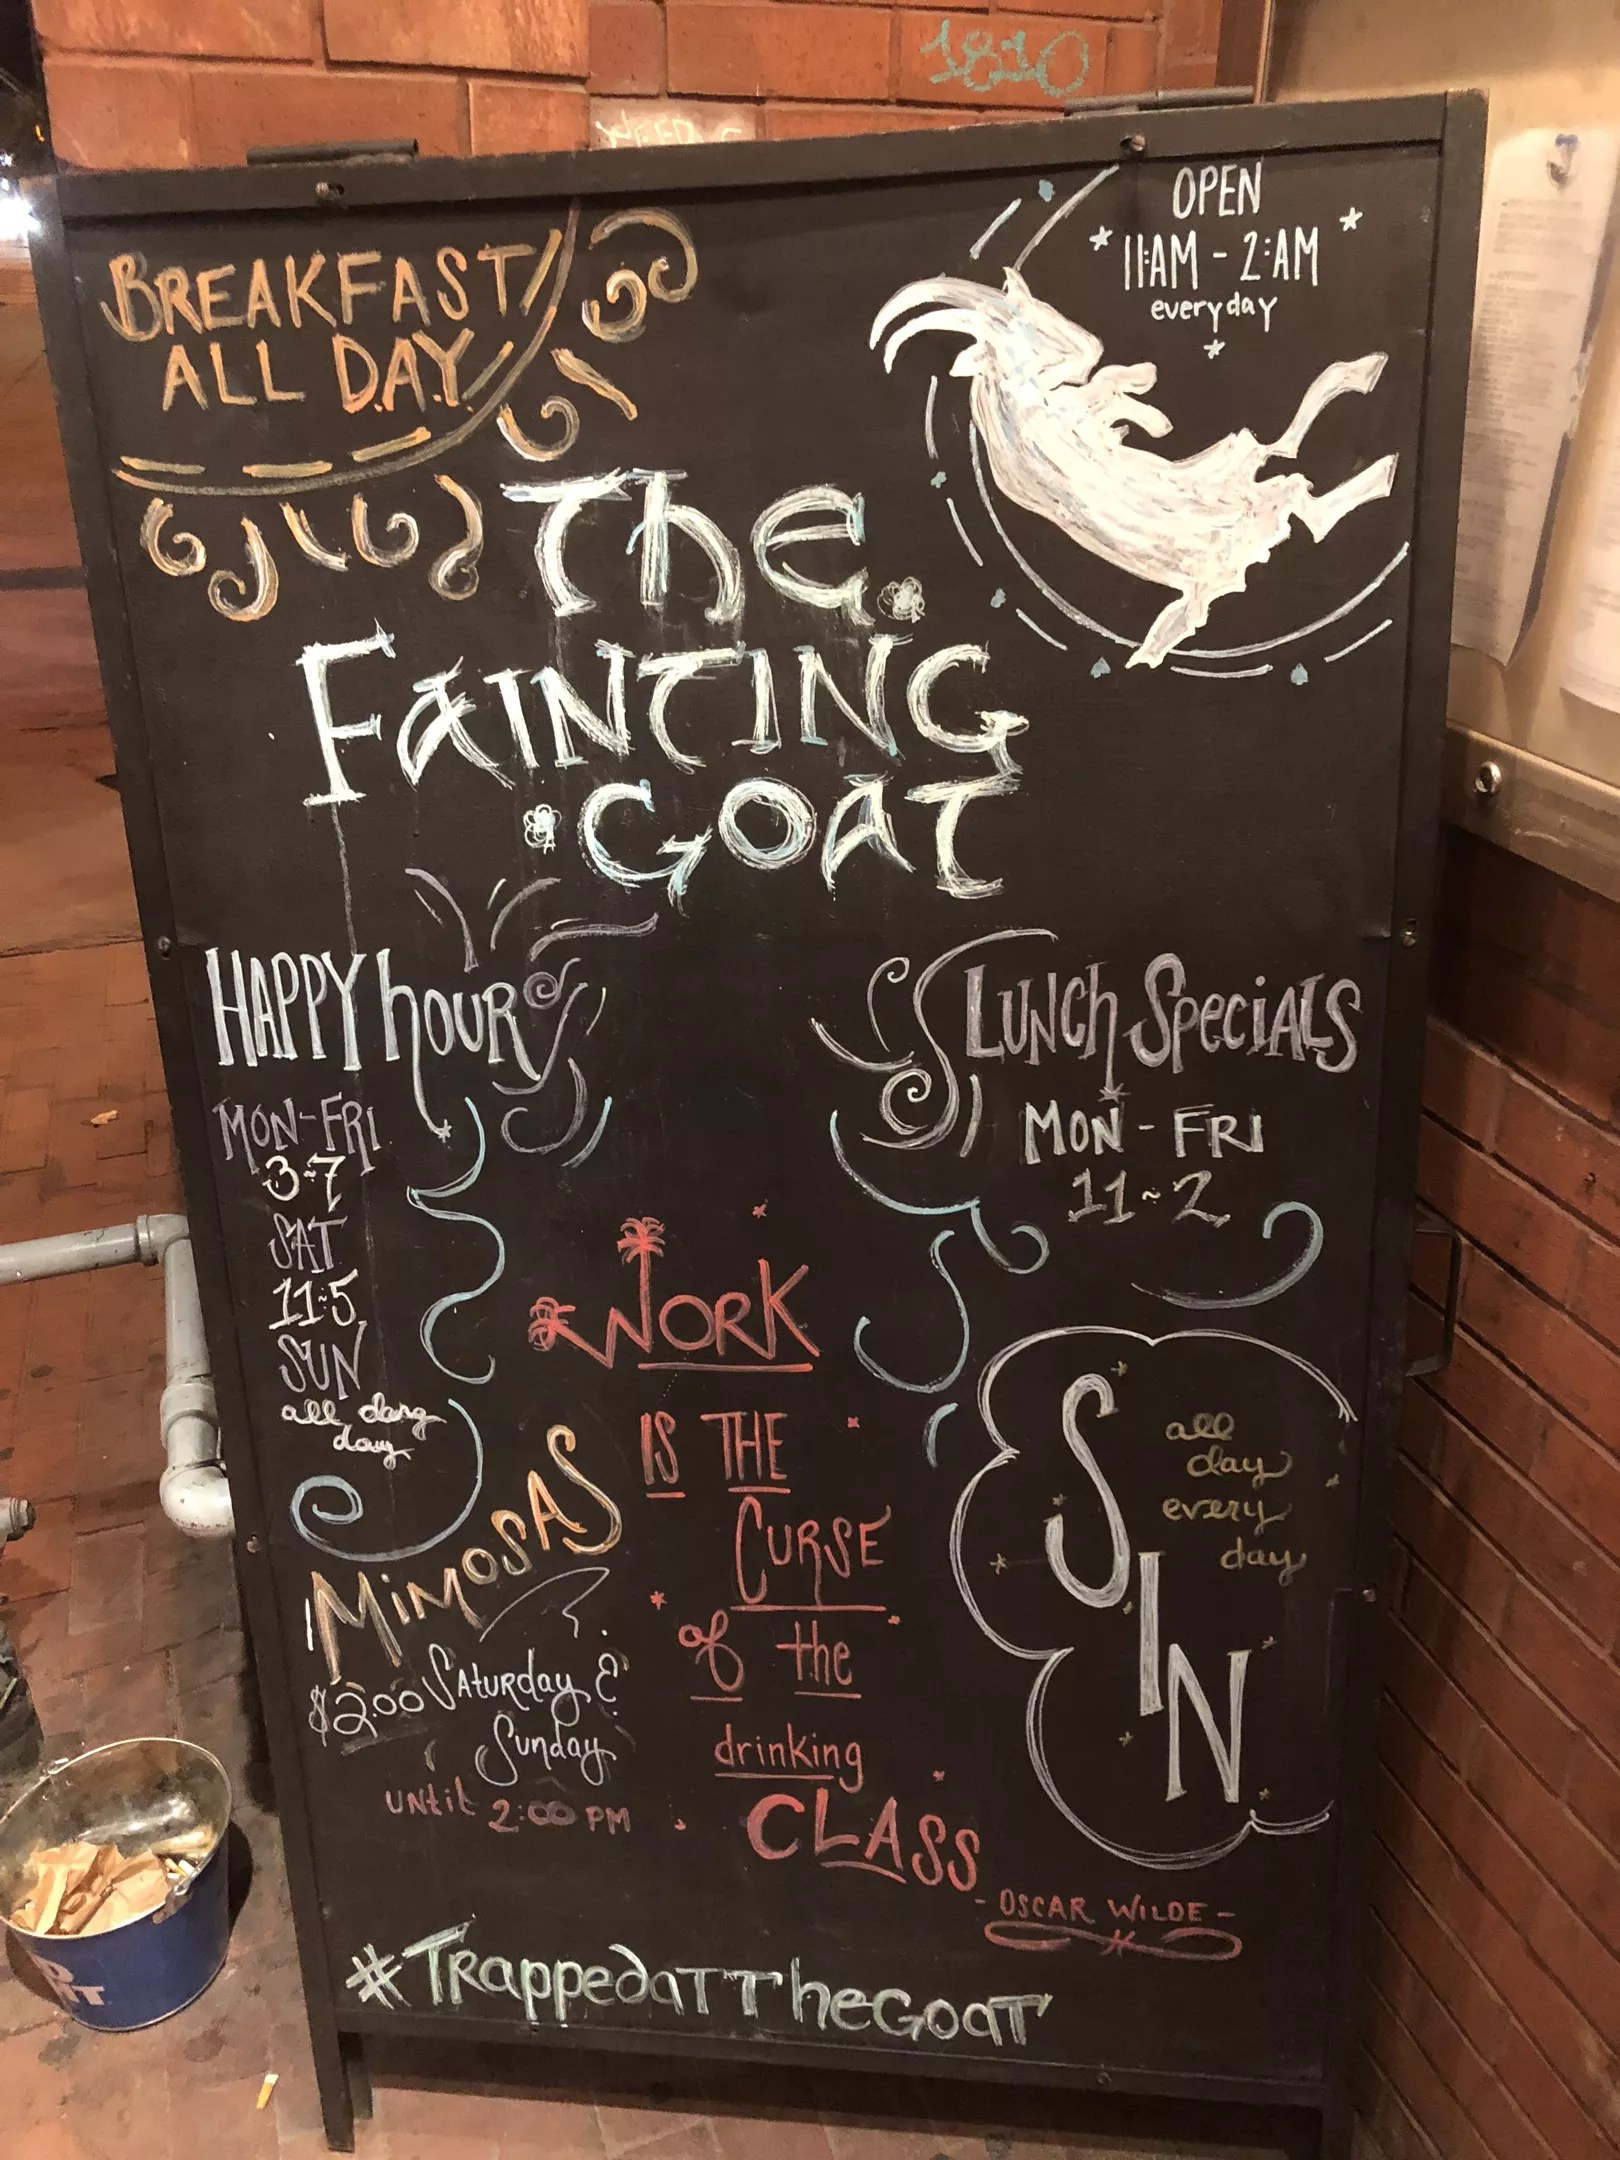 1810
BREAKFAST
ALL D.A.Y.
OPEN
11:AM - 2:AM
everyday
The
FAINTING
GOAT
HAPPY hOUR
MON-FRI
3-7
SAT
11-5
SUN
all dang
day
LUNCh SpeciALS
MON - FRI
11-2
WORK
IS THE
CURSE
of the
drinking
CLASS
- OSCAR WILDE -
SIN
all
day
every
day
MiMOSAS
$2.00 SATURday &
Sunday
UNtil 2:00 PM
#TRappedaTTheGoaT